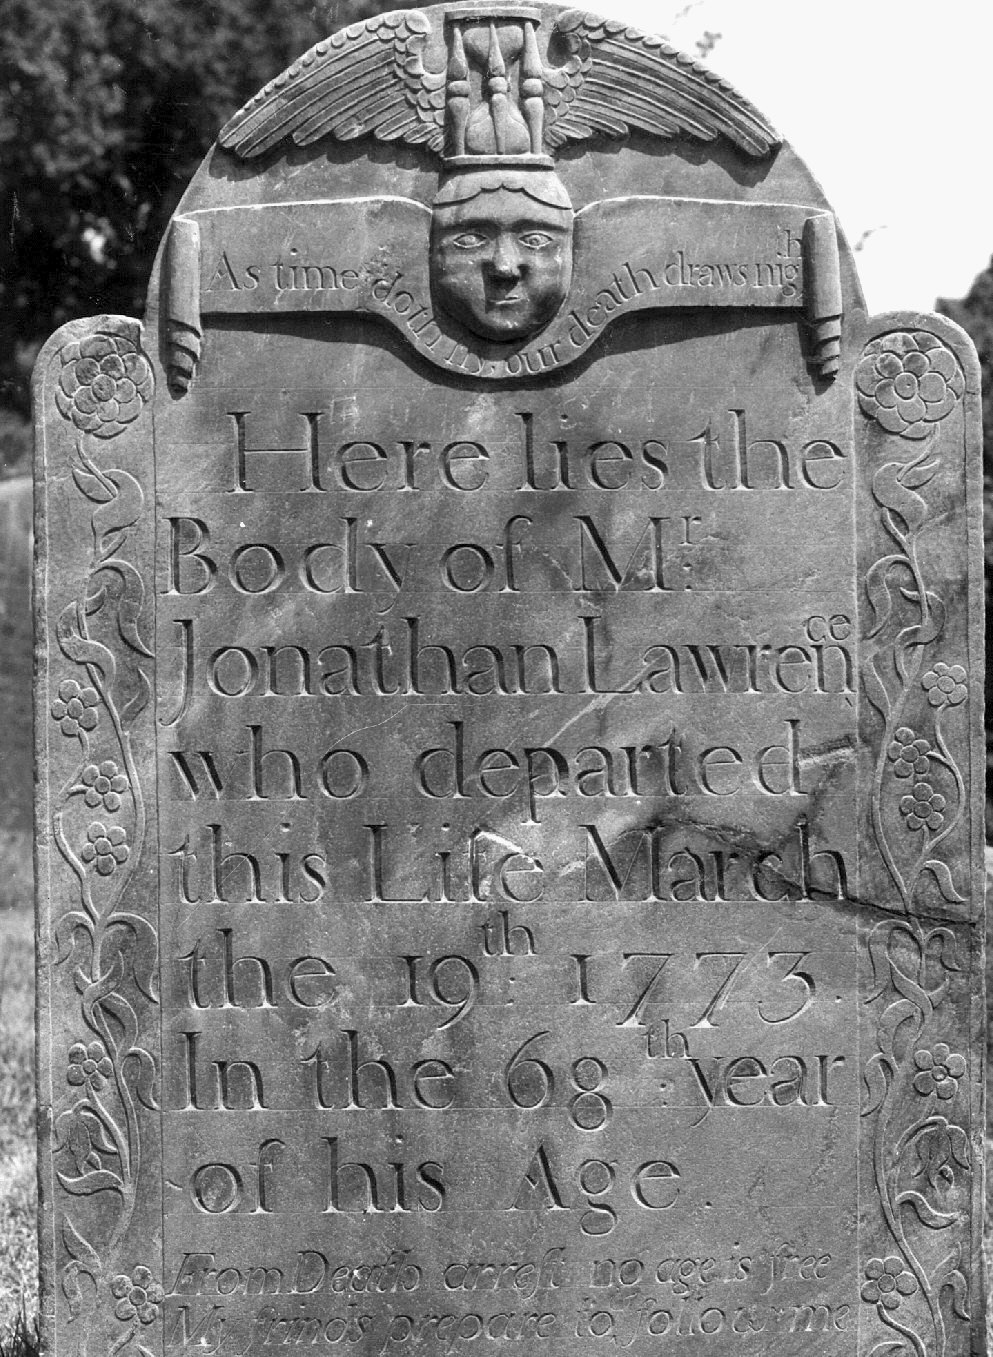 As time doth fly, our death draws nigh
Here lies the
Body of Mr.
Jonathan Lawrence
who departed
this Life March
the 19th: 1773.
In the 68th: year
of his Age.
From Death's arrest no age is free
My frinds prepare to follow me